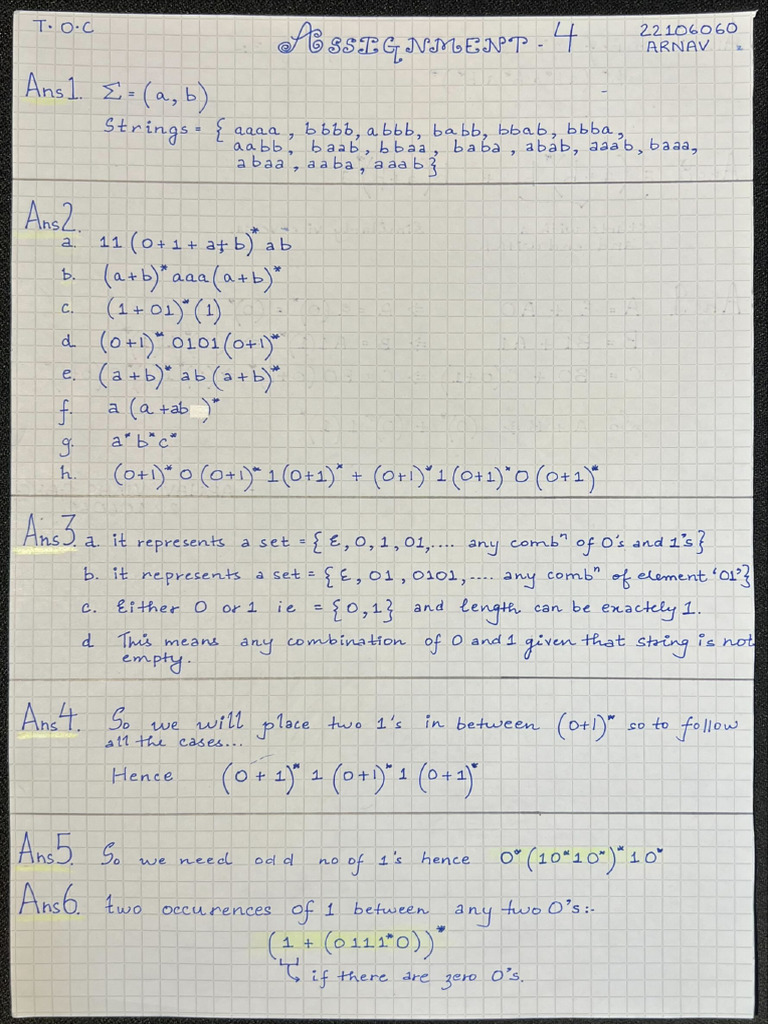 T.O.C
ASSIGNMENT - 4
22106060
ARNAV
Ans1. Σ = (a, b)
Strings = { aaaa, bbbb, abbb, babb, bbab, bbba,
aabb, baab, bbaa, baba, abab, aaab, baaa,
abaa, aaba, aaab}
Ans2.
a. 11 (0+1+a+b)* ab
b. (a+b)* aaa (a+b)*
c. (1+01)* (1)
d (0+1)* 0101 (0+1)*
e. (a+b)* ab (a+b)*
f. a (a+ab )*
g. a* b* c*
h. (0+1)* 0 (0+1)* 1 (0+1)* + (0+1)* 1 (0+1)* 0 (0+1)*
Ans3. a. it represents a set = {ε, 0, 1, 01, .... any combⁿ of 0's and 1's}
b. it represents a set = {ε, 01, 0101, .... any combⁿ of element '01'}
c. Either 0 or 1 ie = {0,1} and length can be exactely 1.
d This means any combination of 0 and 1 given that string is not
empty.
Ans4. So we will place two 1's in between (0+1)* so to follow
all the cases...
Hence (0+1)* 1 (0+1)* 1 (0+1)*
Ans5. So we need odd no of 1's hence 0* (10*10*)* 10*
Ans6. two occurences of 1 between any two 0's:-
(1 + (0111*0))*
↳ if there are zero 0's.